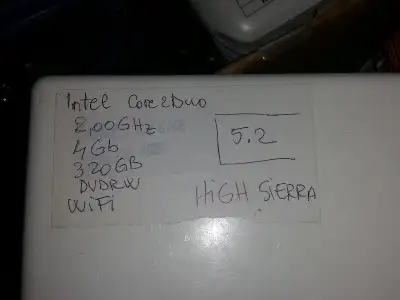 Intel Core 2Duo
2,00GHz
4Gb
320GB
DVDRW
WiFi
5.2
HiGH SiERRA